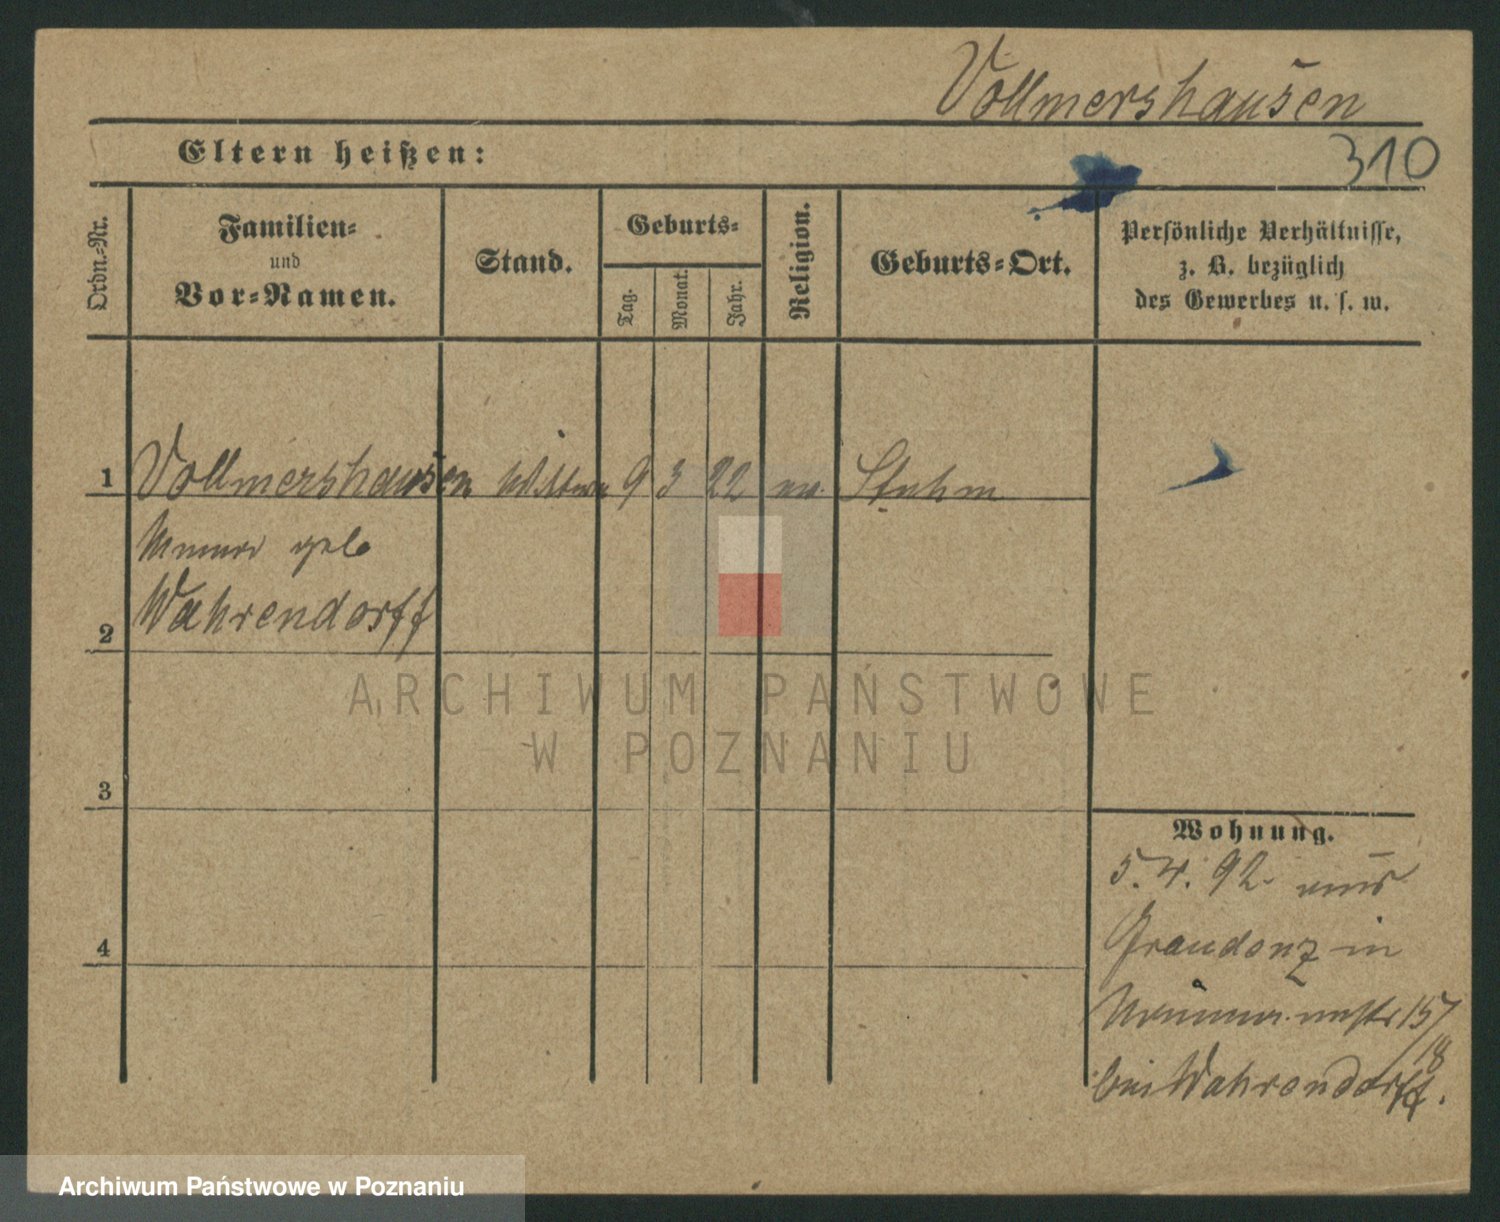 Vollmershausen
Eltern heißen:
310
Ordn.-Nr.
Familien-
und
Vor-Namen.
Stand.
Geburts-
Tag.
Monat.
Jahr.
Religion.
Geburts-Ort.
Persönliche Verhältnisse,
z. B. bezüglich
des Gewerbes u. s. w.
1 Vollmershausen Wittwe 9 3 22 ev. Stuhm
geb
Wahrendorff
2
3
4
Wohnung.
5. 4. 92. aus
Graudenz in
15/
18
bei Wahrendorff.
ARCHIWUM PAŃSTWOWE
W POZNANIU
Archiwum Państwowe w Poznaniu